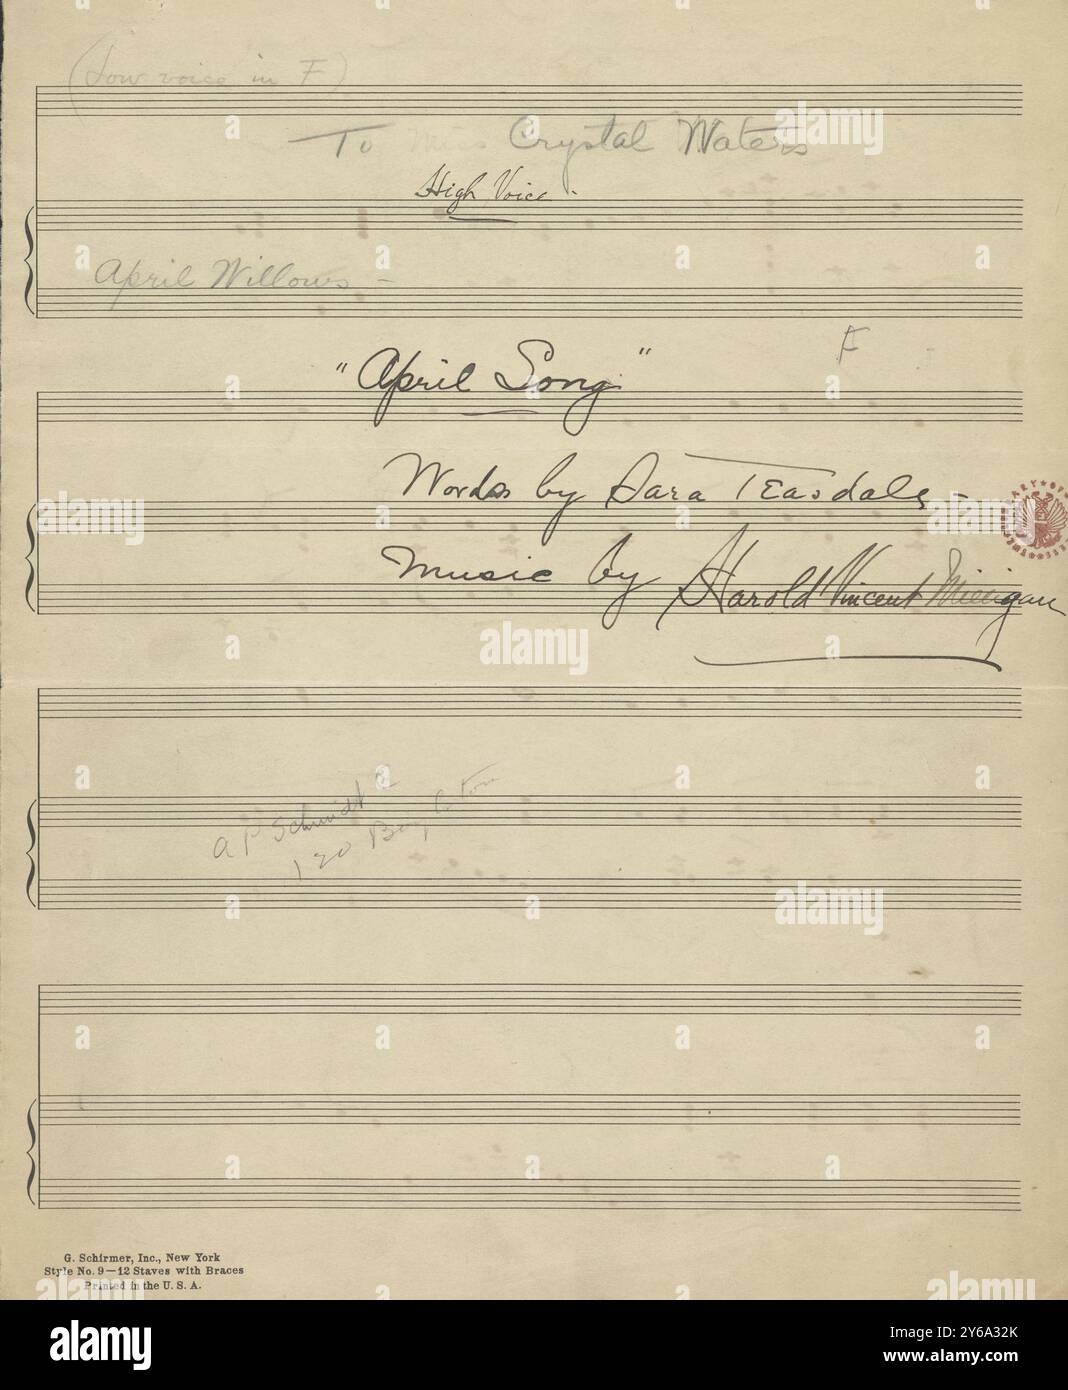 (Low voice in F)
To Miss Crystal Waters
High Voice -
April Willows -
"April Song"
F
Words by Sara Teasdale -
Music by Harold Vincent Milligan
A P Schmidt
120 Boylston
G. Schirmer, Inc., New York
Style No. 9—12 Staves with Braces
Printed in the U. S. A.
alamy
Image ID: 2Y6A32K
www.alamy.com